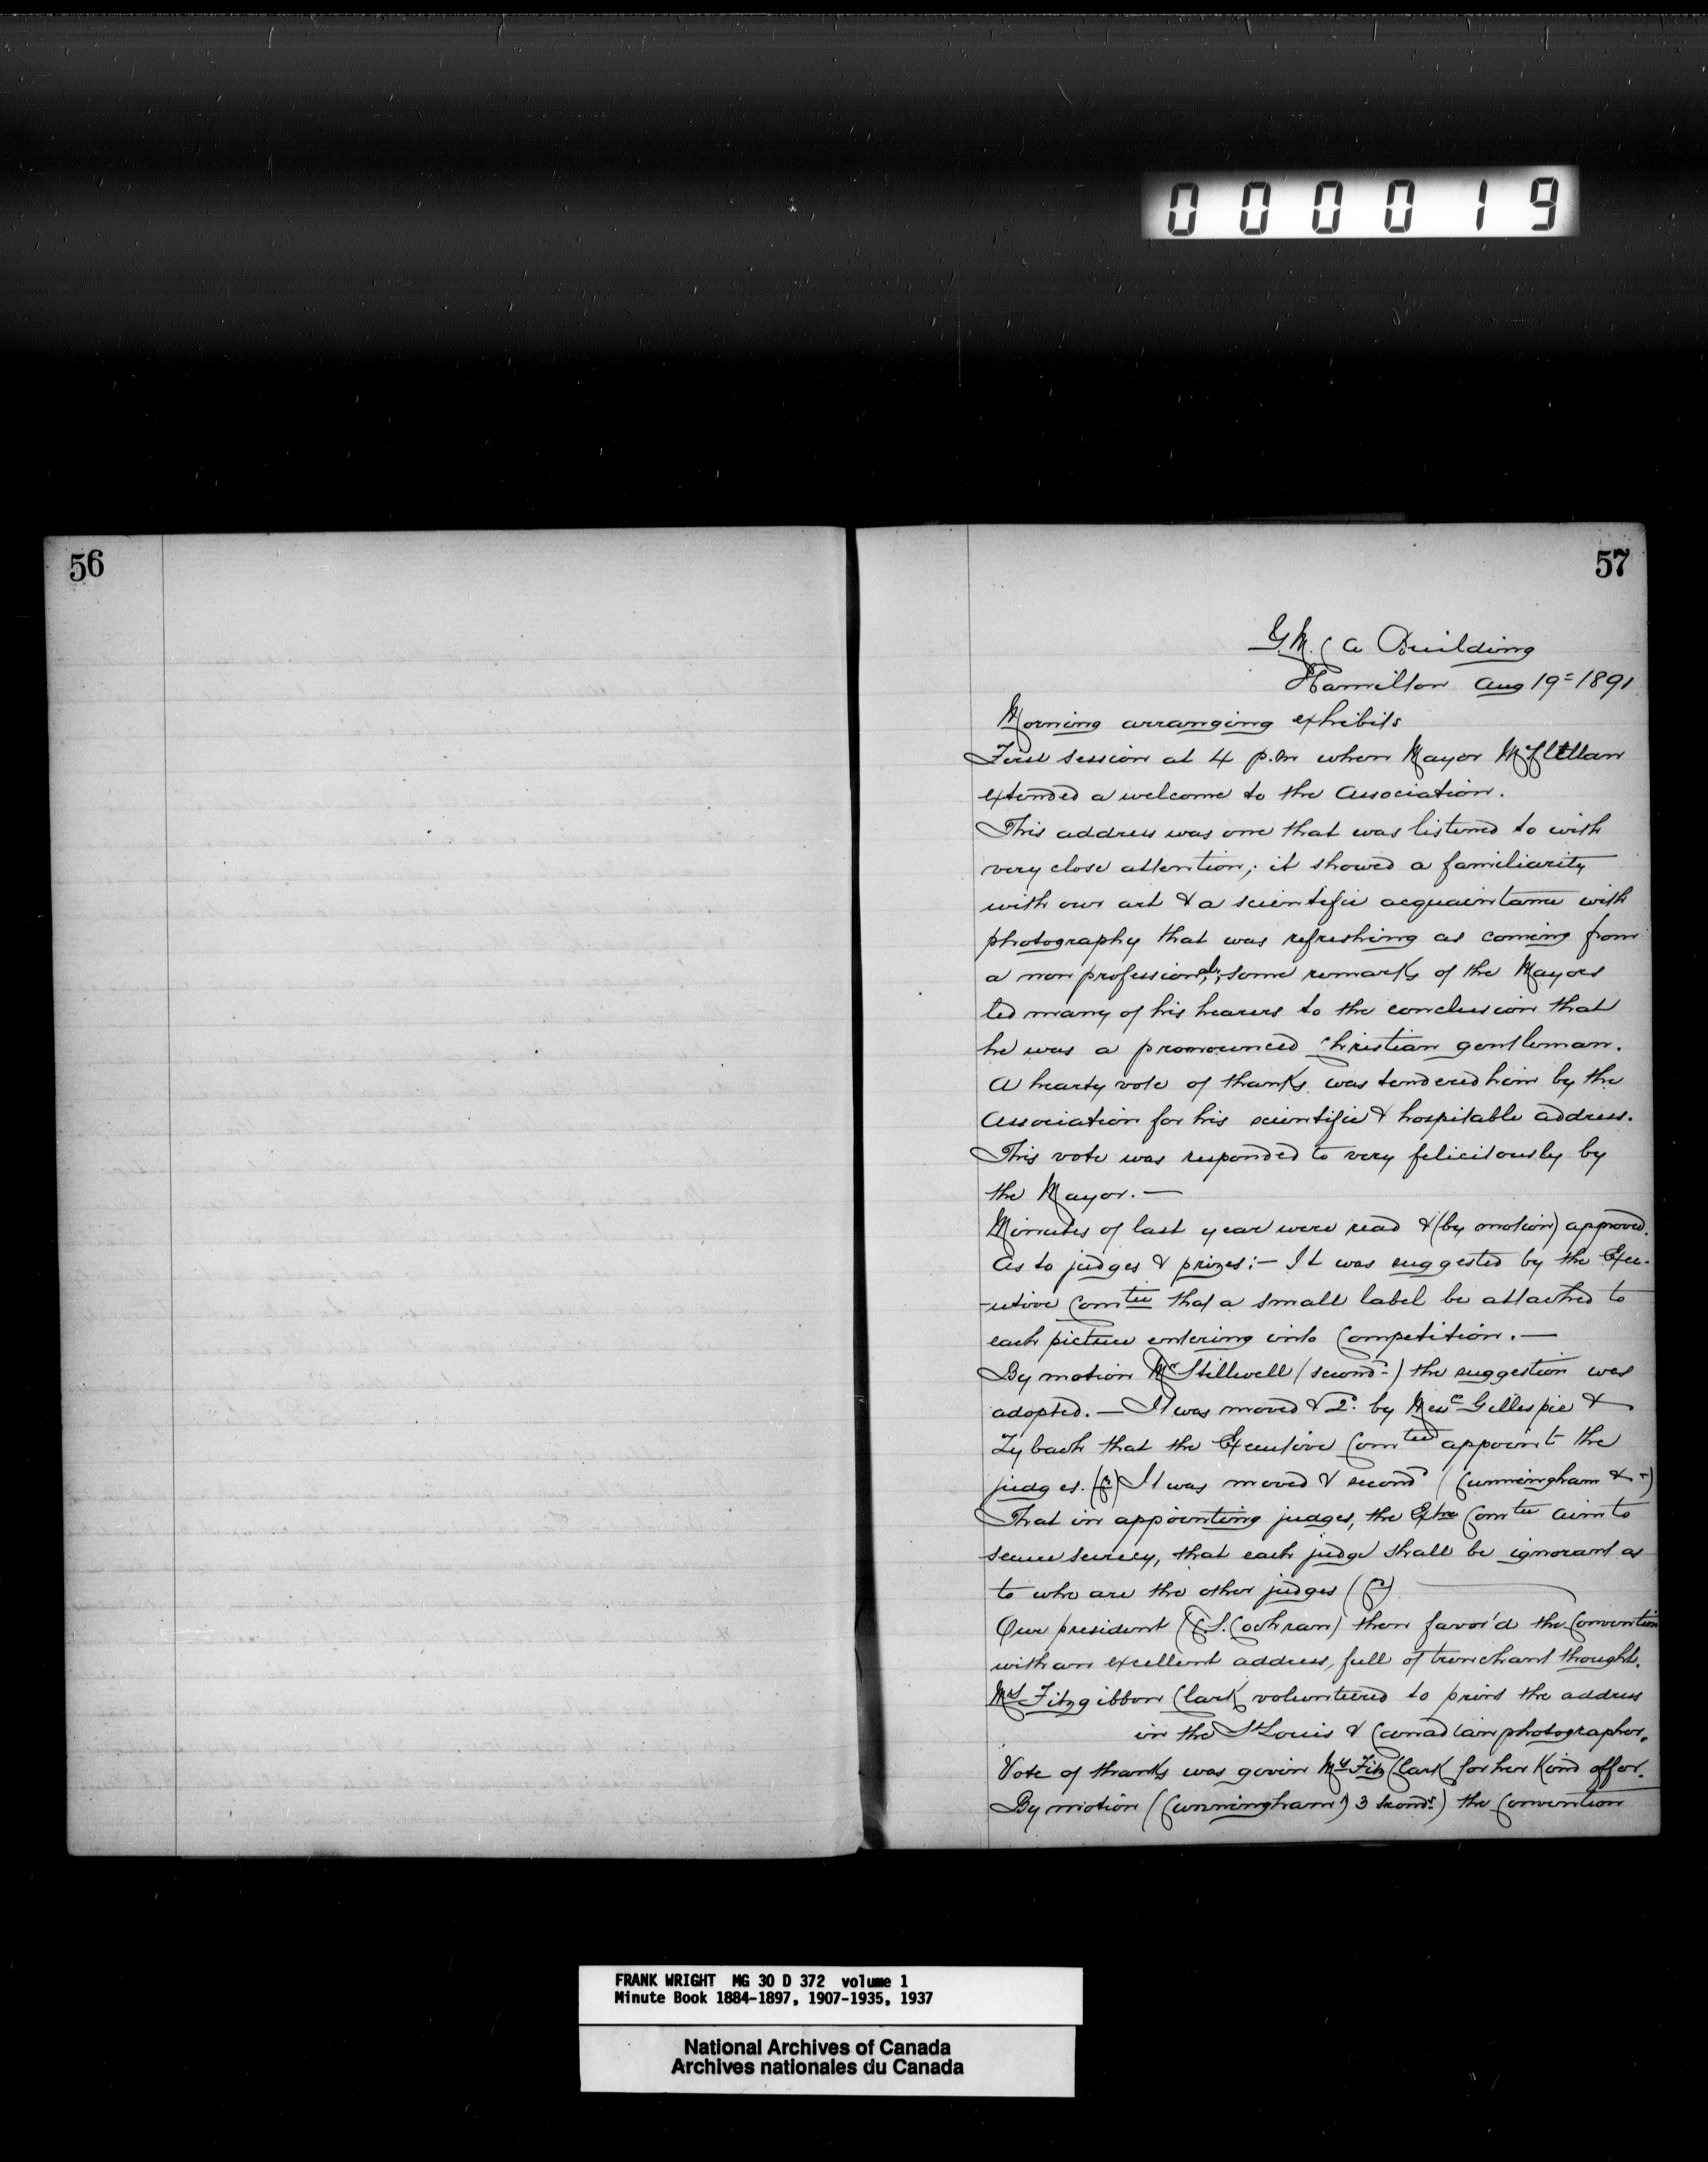 000019
56
57
Y.M.C A Building
Hamilton Aug 19= 1891
Morning arranging exhibits
First session at 4 p.m when Mayor McLellan
extended a welcome to the Association.
This address was one that was listened to with
very close attention; it showed a familiarity
with our art & a scientific acquaintance with
photography that was refreshing as coming from
a non professional; some remarks of the Mayors
led many of his hearers to the conclusion that
he was a pronounced christian gentleman.
A hearty vote of thanks was tendered him by the
Association for his scientific & hospitable address.
This vote was responded to very felicitously by
the Mayor.—
Minutes of last year were read & (by motion) approved.
As to judges & prizes:— It was suggested by the Exec-
-utive Comtee that a small label be attached to
each picture entering into Competition.—
By motion Mr Stillwell (second-) the suggestion was
adopted.— It was moved & 2d. by Mess Gillespie &
Zybach that the Executive Comtee appoint the
judges. (C) It was moved & second (Cunningham & -)
That in appointing judges, the Extve Comtee aim to
secure secrecy, that each judge shall be ignorant as
to who are the other judges (C)
Our president (C.S. Cochran) then favor'd the Convention
with an excellent address, full of trenchant thought.
Mrs Fitzgibbon Clark volunteered to print the address
in the St Louis & Canadian photographer.
Vote of thanks was given Mrs Fitz Clark for her kind offer.
By motion (Cunningham) 3 second:) the Convention
FRANK WRIGHT MG 30 D 372 volume 1
Minute Book 1884-1897, 1907-1935, 1937
National Archives of Canada
Archives nationales du Canada